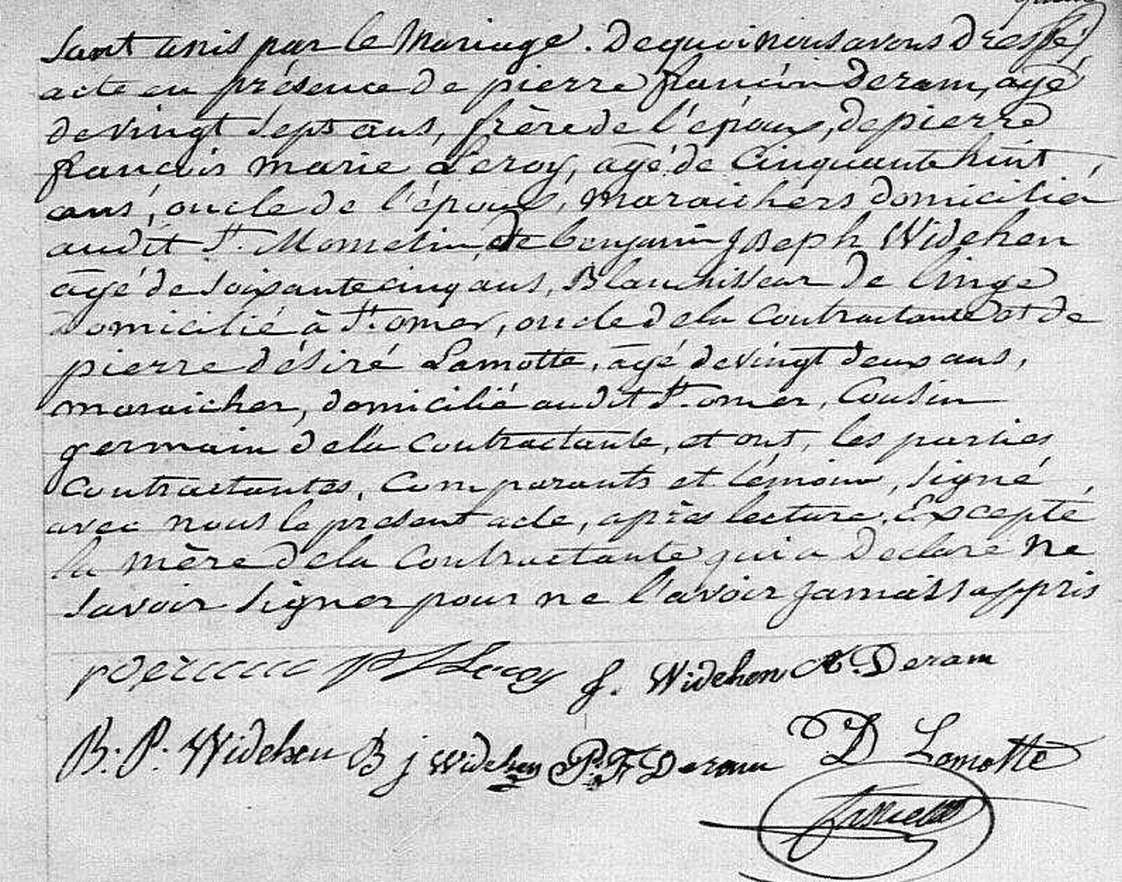 sont unis par le Mariage. De quoi nous avons Dressé
acte en présence de pierre francois Deram, agé
de vingt Sept ans, frère de l'époux, de pierre
francois marie Leroy, agé de Cinquante huit
ans, oncle de l'époux, maraichers domicilié
audit St. Momelin, de benjamin Joseph Widehen
agé de soixante cinq ans, Blanchisseur de linge
Domicilié à St. omer, oncle de la Contractante et de
pierre désiré Lamotte, agé de vingt deux ans,
maraicher, domicilié audit St. omer, Cousin
germain de la Contractante, et ont, les parties
Contractantes, Comparants et témoins, signé
avec nous le present acte, après lecture. Excepté
la mère de la Contractante qui a Declaré ne
savoir signer pour ne l'avoir jamais appris
Leroy J. Widehen A. Deram
B. P. Widehen B j Widehen P. F Deram D Lamotte